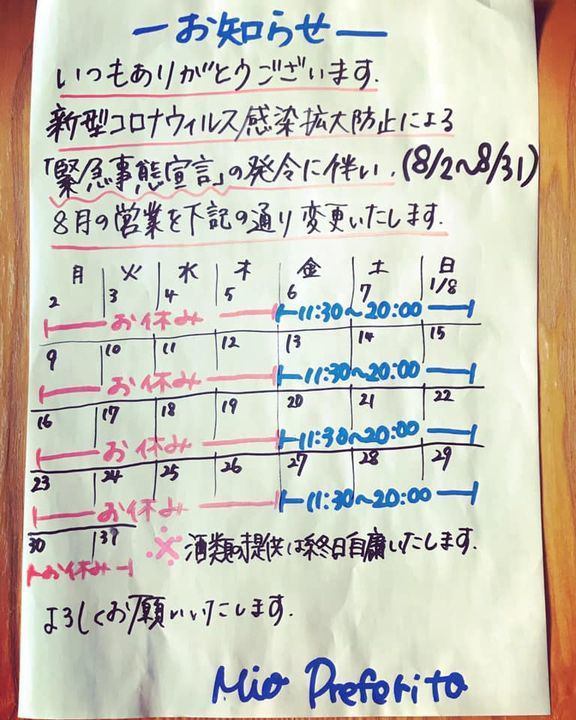 ーお知らせー
いつもありがとうございます.
新型コロナウィルス感染拡大防止による
「緊急事態宣言」の発令に伴い,(8/2〜8/31)
8月の営業を下記の通り変更いたします.
月 火 水 木 金 土 日
2 3 4 5 6 7 1/8
お休み 11:30〜20:00
9 10 11 12 13 14 15
お休み 11:30〜20:00
16 17 18 19 20 21 22
お休み 11:30〜20:00
23 24 25 26 27 28 29
お休み 11:30〜20:00
30 31
お休み
※酒類の提供は終日自粛いたします.
よろしくお願いいたします.
Mio Preferito